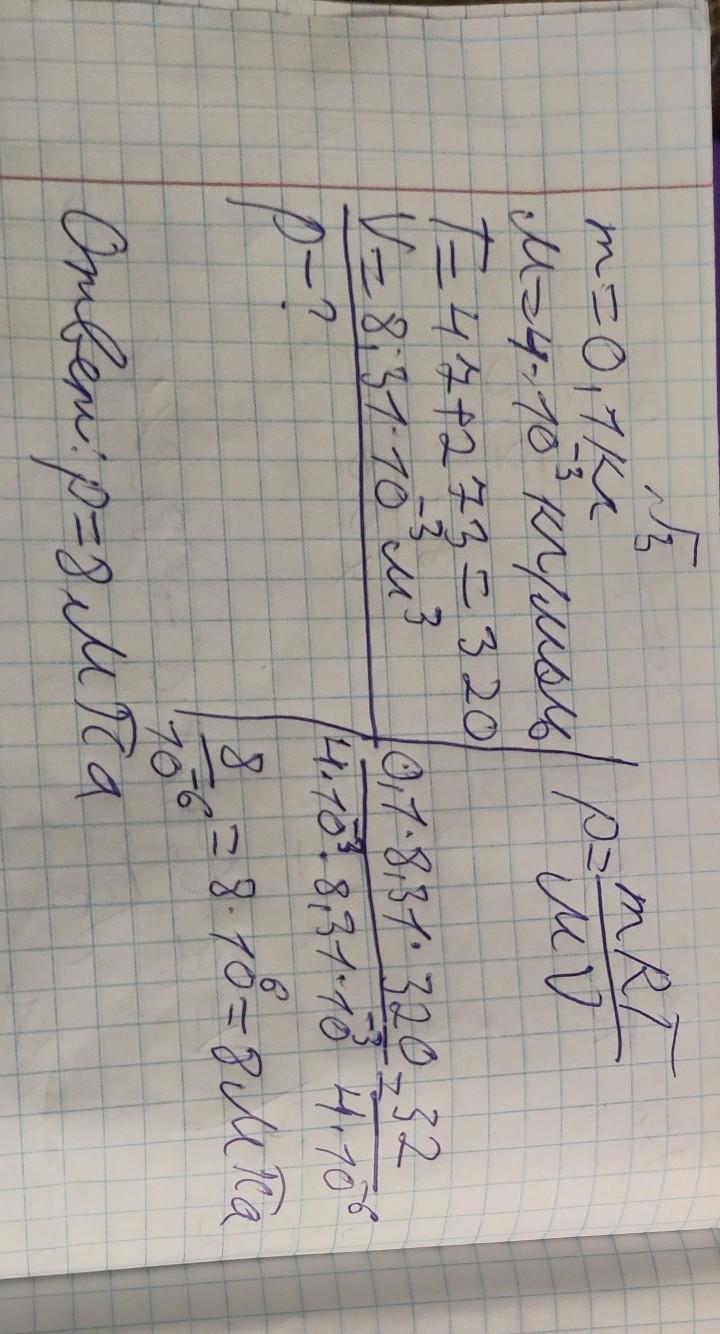 √3
m=0,1кг
M=4·10⁻³ кг/моль
T=47+273=320
V=8,31·10⁻³ м³
p-?
p=mRT/MV
0,1·8,31·320/4·10⁻³·8,31·10⁻³=32/4·10⁻⁶
8/10⁻⁶=8·10⁶=8МПа
Ответ: p=8МПа